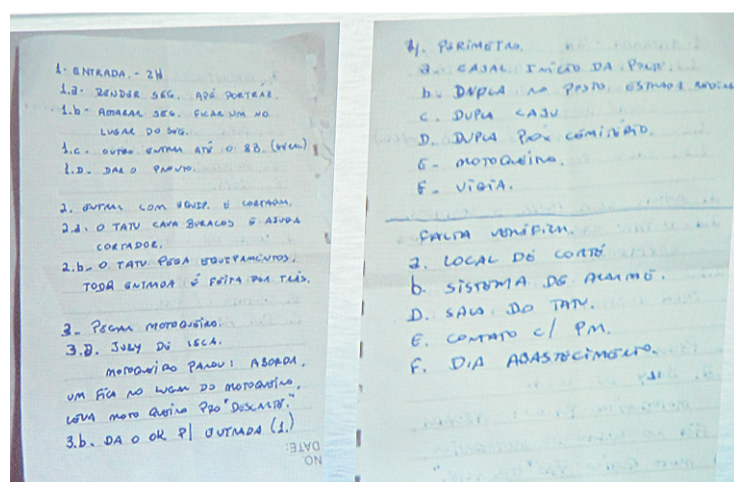 1- ENTRADA. - 2H
1.a- RENDER SEG. APÓ PORTRAR.
1.b- AMARAR SEG. FICAR UM NO
LUGAR DO SEG.
1.c. OUTRO ENTRAR ATÉ O BB.
1.D. DAR O PRONTO.
2. ENTRAR COM EQUIP. E CORTADOR.
2.a. O TATU CAVA BURACOS E AJUDA
CORTADOR.
2.b- O TATU PEGA EQUIPAMENTOS,
TODA ENTRADA É FEITA POR TRÁS.
3- PEGAR MOTOQUEIRO.
3.a. JUBY DE ISCA.
MOTOQUEIRO PAROU: ABORDA,
UM FICA NO LUGAR DO MOTOQUEIRO,
LEVA MOTOQUEIRO PRO "DESCARTE."
3.b. DA O OK P/ ENTRADA (1.)
DATE:
NO
4. PERIMETRO.
a. CASAL INÍCIO DA PONTE.
b. DUPLA NO POSTO
C. DUPLA CAJU
D. DUPLA PROX CEMITÉRIO.
E- MOTOQUEIRO.
F. VIGIA.
FALTA VERIFICAR.
a. LOCAL DE CORTE
b. SISTEMA DE ALARME.
D. SALA DO TATU.
E. CONTATO C/ PM.
F. DIA ABASTECIMENTO.